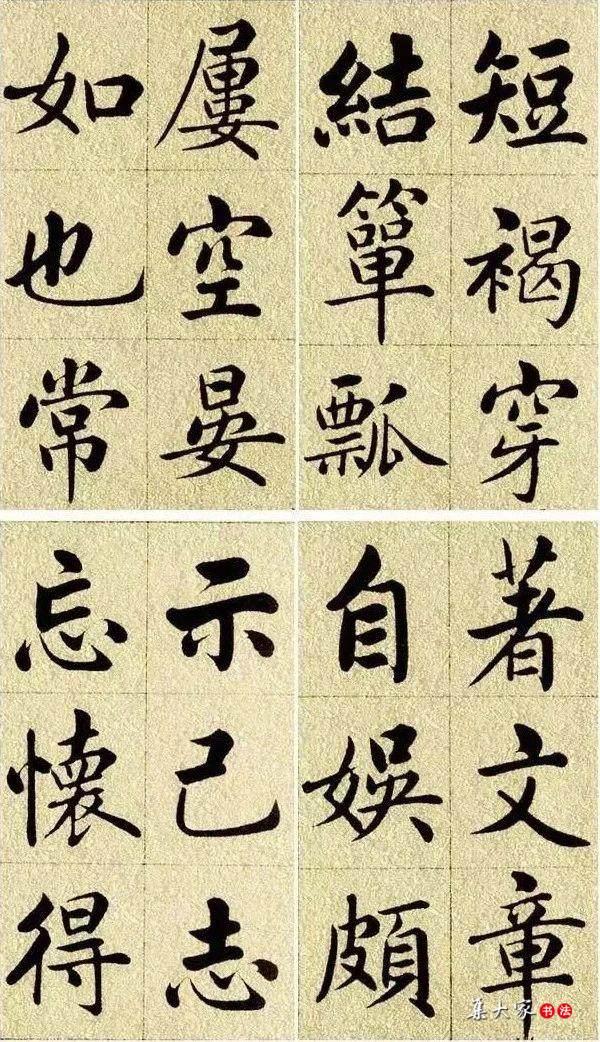 短褐穿
結簞瓢
屢空晏
如也常
著文章
自娛頗
示己志
忘懷得
集大家书法